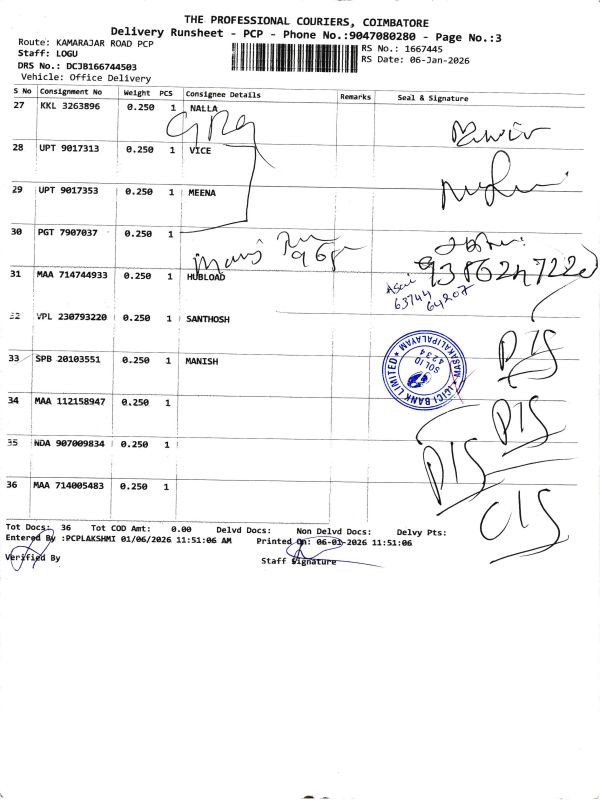 THE PROFESSIONAL COURIERS, COIMBATORE
Delivery Runsheet - PCP - Phone No.:9047080280 - Page No.:3
Route: KAMARAJAR ROAD PCP
RS No.: 1667445
Staff: LOGU
RS Date: 06-Jan-2026
DRS No.: DCJB166744503
Vehicle: Office Delivery
S No Consignment No Weight PCS Consignee Details Remarks Seal & Signature
27 KKL 3263896 0.250 1 NALLA
28 UPT 9017313 0.250 1 VICE
29 UPT 9017353 0.250 1 MEENA
30 PGT 7907037 0.250 1
31 MAA 714744933 0.250 1 HUBLOAD
9386247220
63744
64207
32 VPL 230793220 0.250 1 SANTHOSH
33 SPB 20103551 0.250 1 MANISH
ICICI BANK LIMITED ★ MASAKALIPALAYAM ★
SOL ID
4234
34 MAA 112158947 0.250 1
35 NDA 907009834 0.250 1
36 MAA 714005483 0.250 1
Tot Docs: 36 Tot COD Amt: 0.00 Delvd Docs: Non Delvd Docs: Delvy Pts:
Entered By :PCPLAKSHMI 01/06/2026 11:51:06 AM Printed On: 06-01-2026 11:51:06
Verified By
Staff Signature